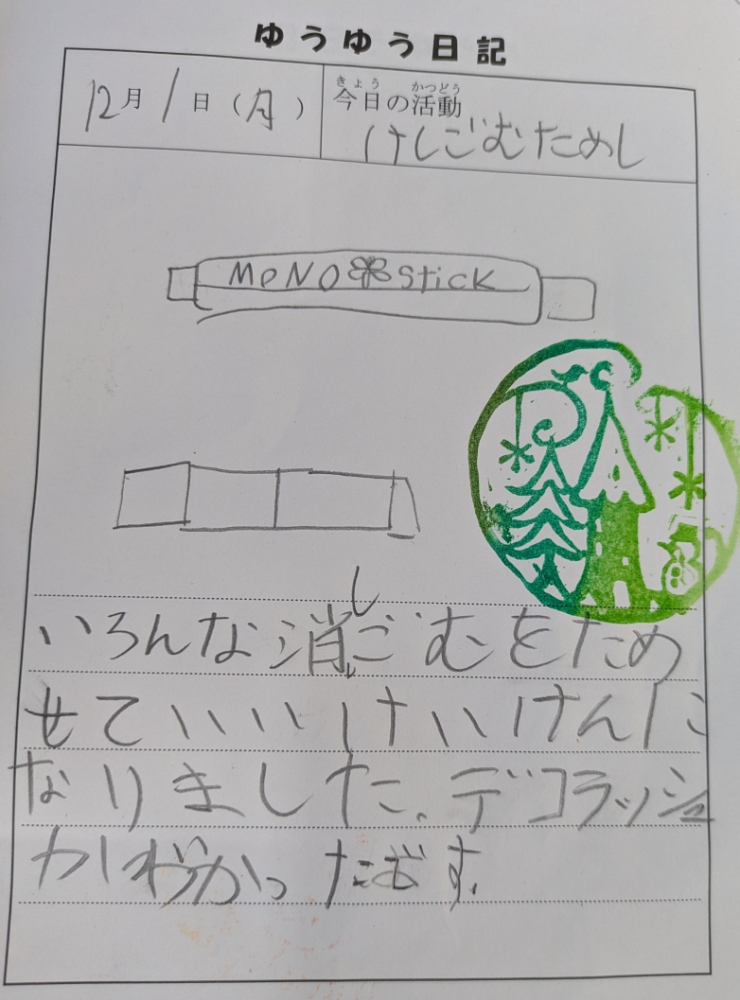 ゆうゆう日記
12月1日(月)
きょう かつどう
今日の活動
けしごむためし
MONO stick
いろんな消しごむをため
せていいいけいけんに
なりました。デコラッシュ